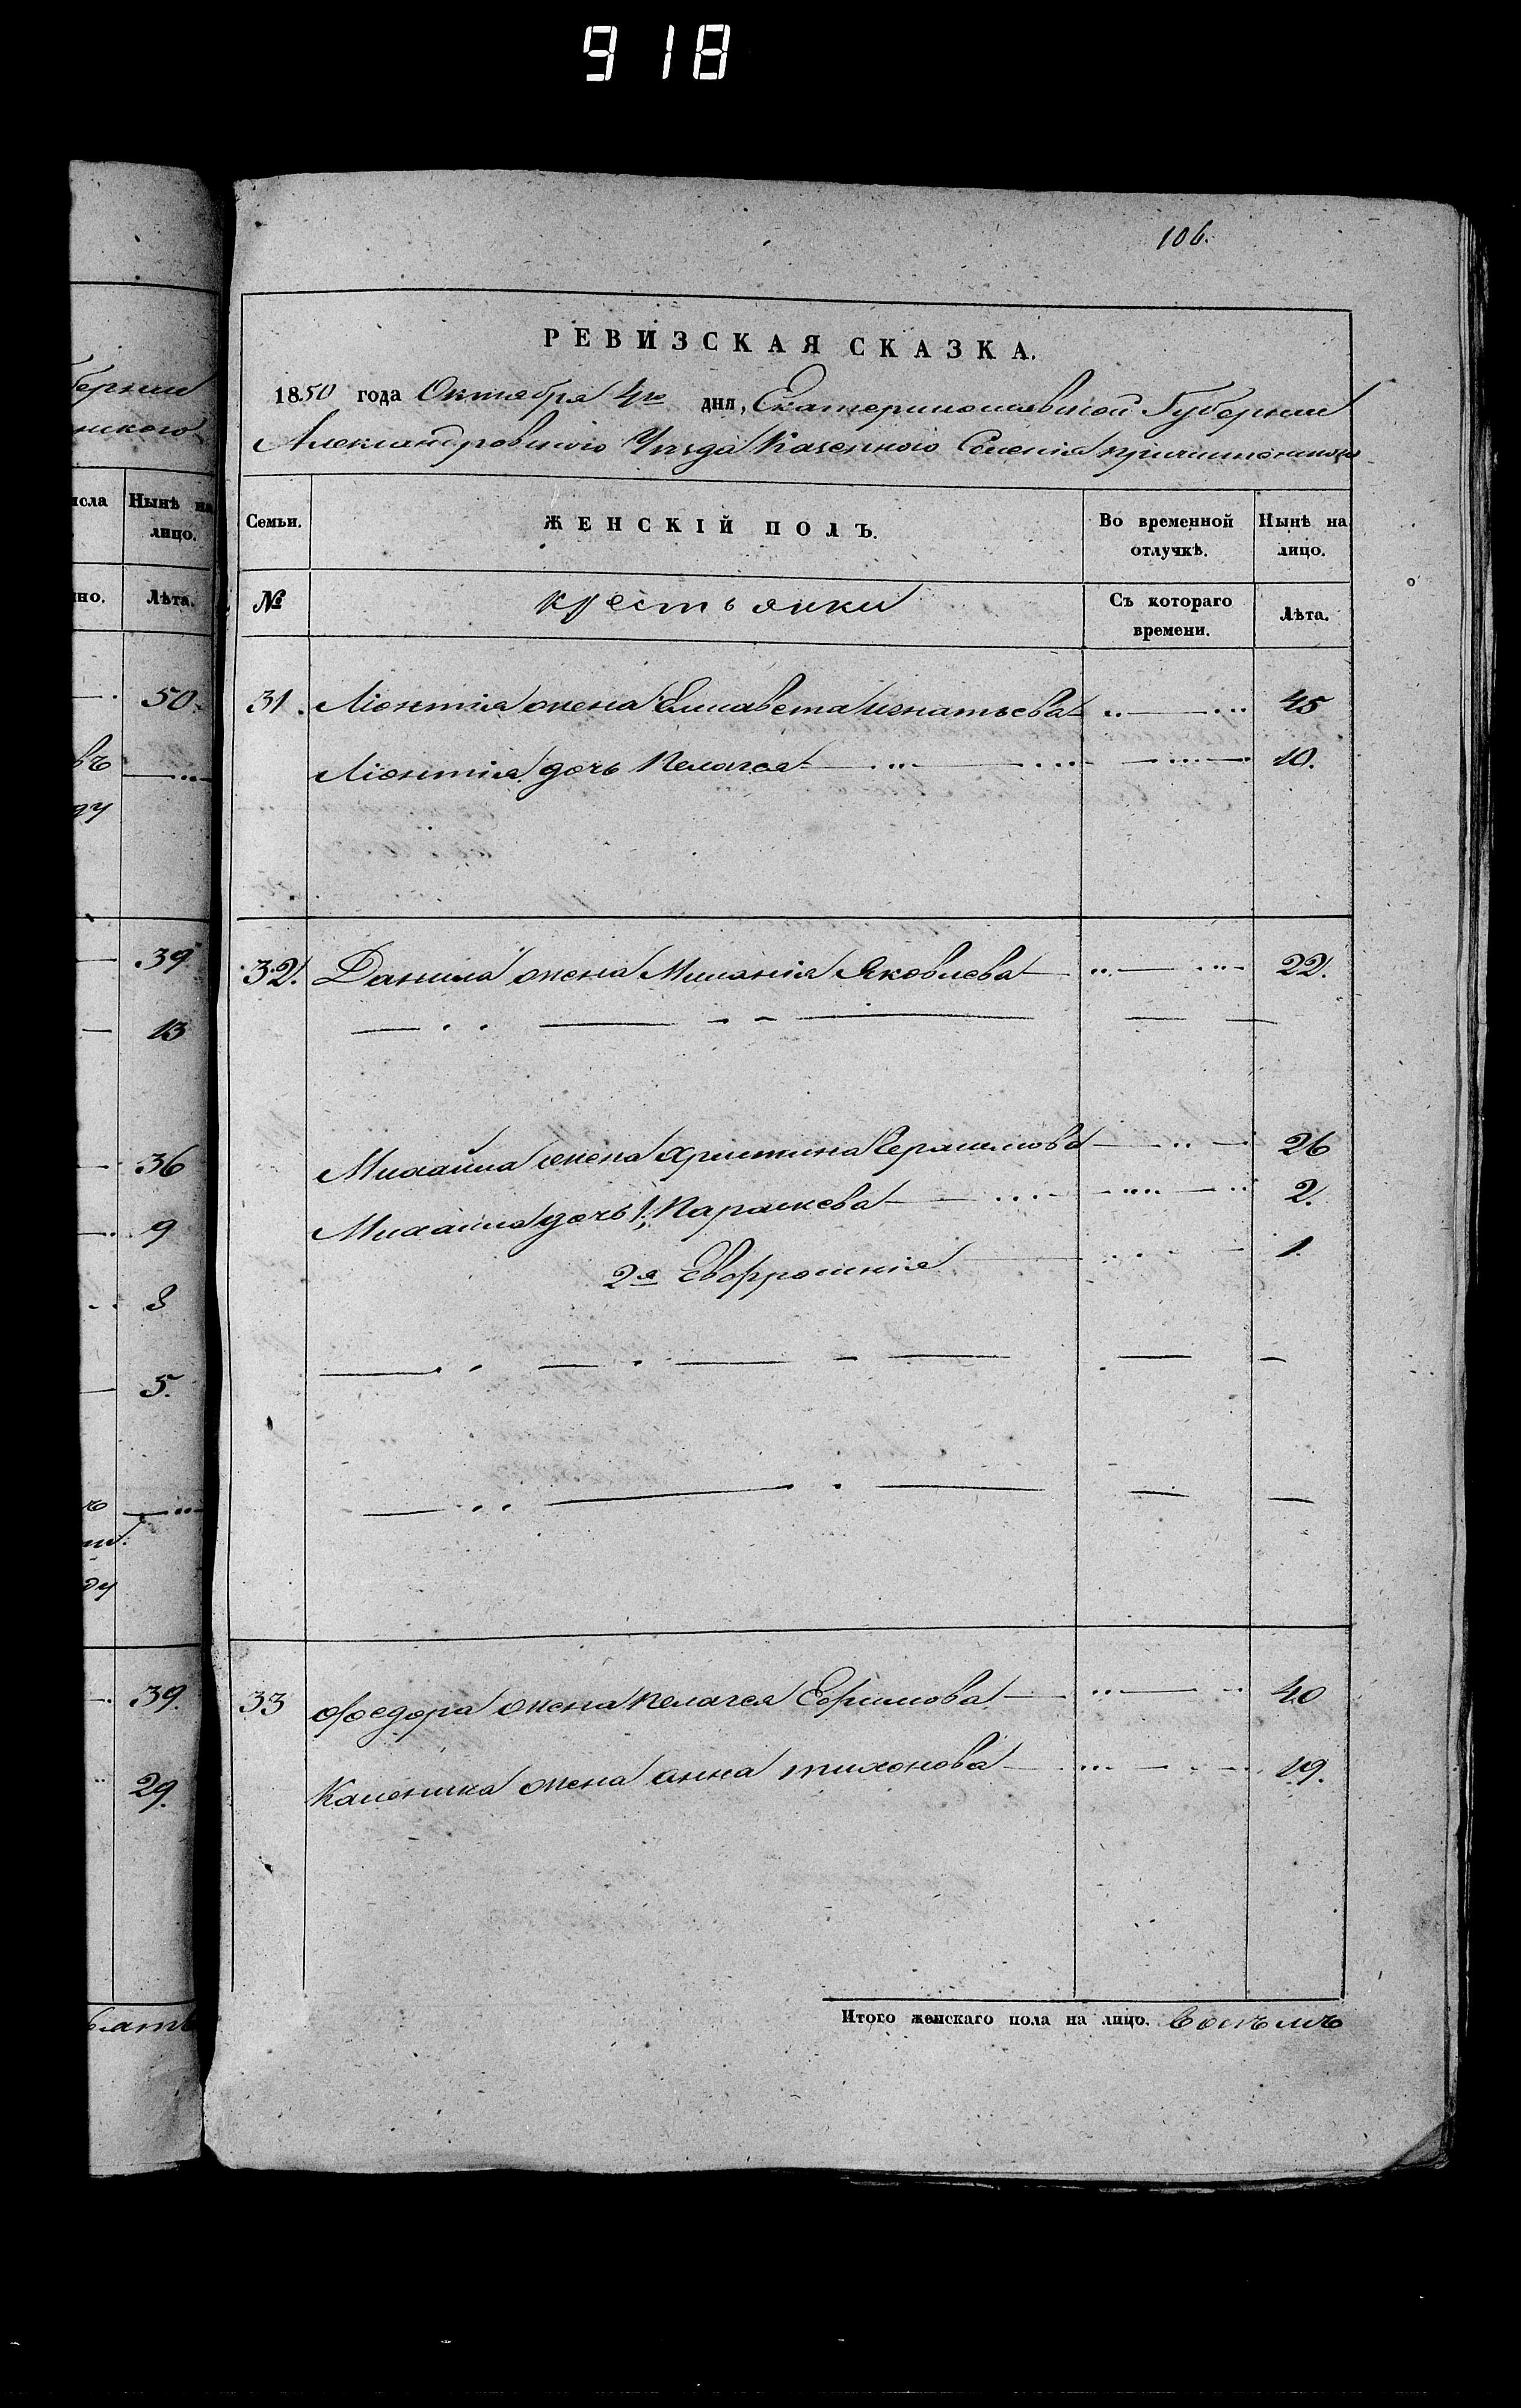 918
106.
РЕВИЗСКАЯ СКАЗКА.
1850 года Октября 4го дня, Екатеринославской Губернии
Александровского Уезда Казенного Селения
Семьи. ЖЕНСКІЙ ПОЛЪ. Во временной отлучкѣ. Нынѣ на лицо.
№ крестьянки Съ котораго времени. Лѣта.
31. Ліонтія жена Елисавета Игнатьева 45
Ліонтія дочь Пелагея 10.
32. Данила жена Миланія Яковлева 22.
Михайла жена Христина Герасимова 26
Михайла дочь 1я Параскева 2.
2я Евфросинія 1.
33 Федора жена Пелагея Ефимова 40
Каленика жена анна тихонова 19.
Итого женскаго пола на лицо. восемь
исла Нынѣ на лицо.
но. Лѣта.
50.
39
13
36
9
3
5.
39.
29.